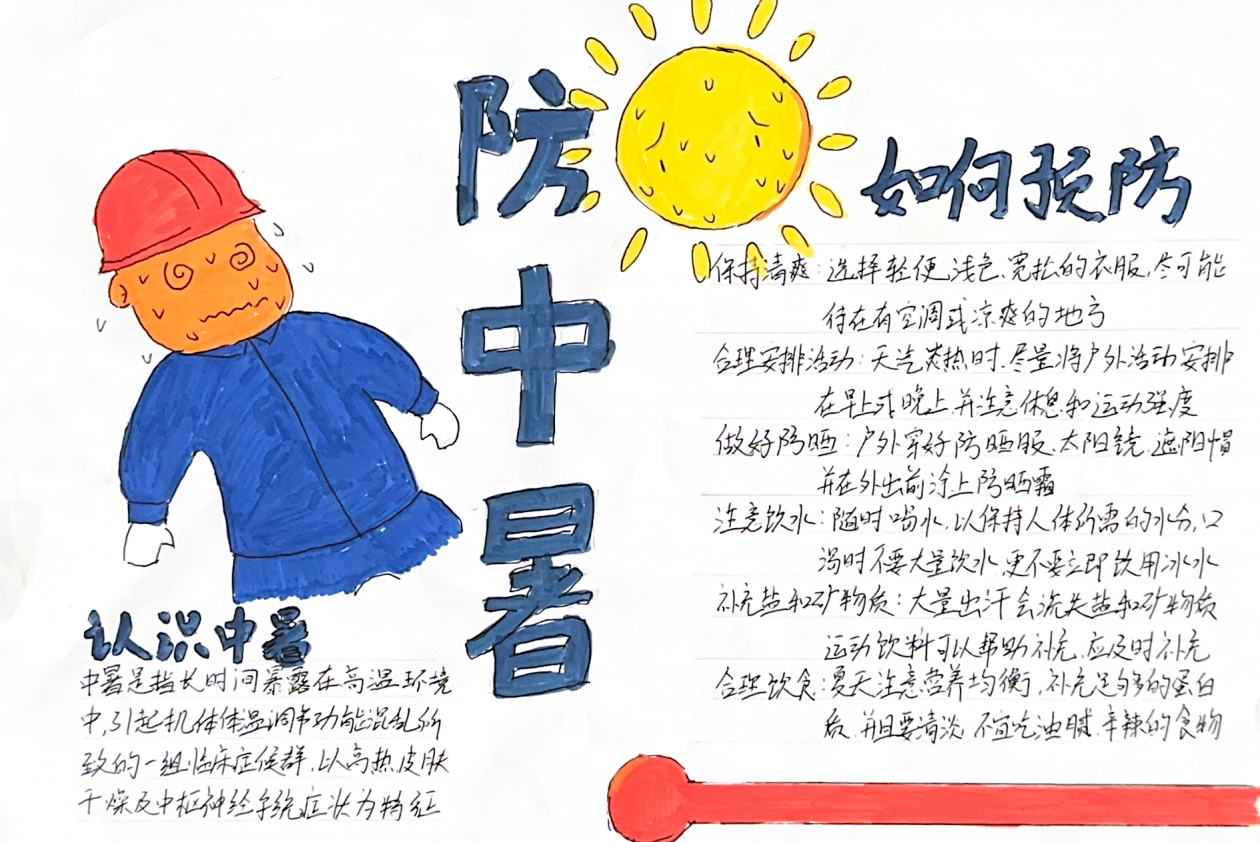 防
中
暑
如何预防
保持清爽：选择轻便、浅色、宽松的衣服，尽可能
待在有空调或凉爽的地方
合理安排活动：天气炎热时，尽量将户外活动安排
在早上或晚上，并注意休息和运动强度
做好防晒：户外穿好防晒服、太阳镜、遮阳帽
并在外出前涂上防晒霜
注意饮水：随时喝水，以保持人体所需的水分，口
渴时不要大量饮水，更不要立即饮用冰水
补充盐和矿物质：大量出汗会流失盐和矿物质
运动饮料可以帮助补充，应及时补充
合理饮食：夏天注意营养均衡，补充足够多的蛋白
质，并且要清淡，不宜吃油腻、辛辣的食物
认识中暑
中暑是指长时间暴露在高温环境
中，引起机体体温调节功能混乱所
致的一组临床症候群，以高热皮肤
干燥及中枢神经系统症状为特征